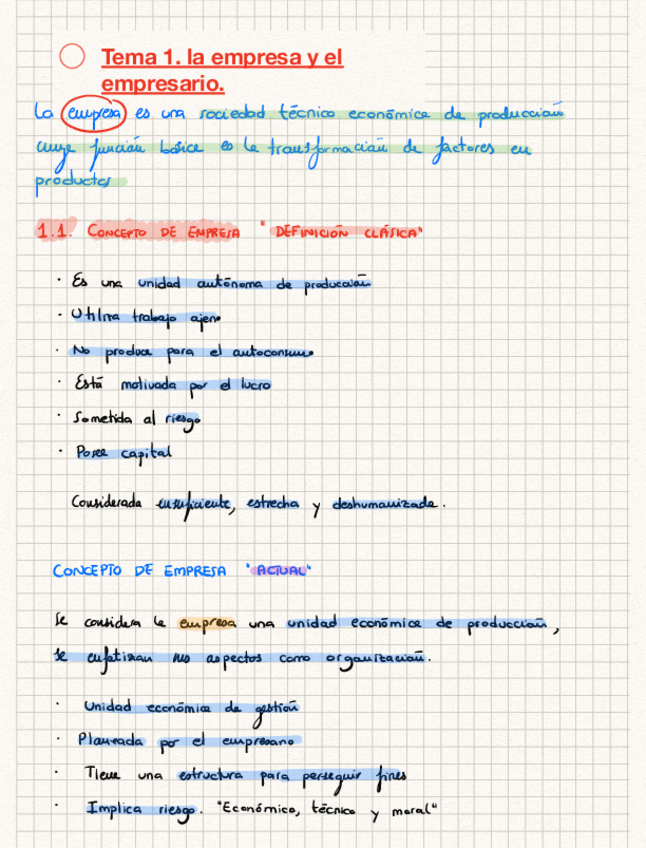 Tema 1. la empresa y el
empresario.
La empresa es una sociedad técnico económica de producción
cuya función básica es la transformación de factores en
productos
1.1. CONCEPTO DE EMPRESA "DEFINICIÓN CLÁSICA"
· Es una unidad autónoma de producción
· Utiliza trabajo ajeno
· No produce para el autoconsumo
· Está motivada por el lucro
· Sometida al riesgo
· Posee capital
Considerada insuficiente, estrecha y deshumanizada.
CONCEPTO DE EMPRESA "ACTUAL"
Se considera la empresa una unidad económica de producción,
se enfatizan sus aspectos como organización.
· Unidad económica de gestión
· Planeada por el empresario
· Tiene una estructura para perseguir fines
· Implica riesgo. "Económico, técnico y moral"